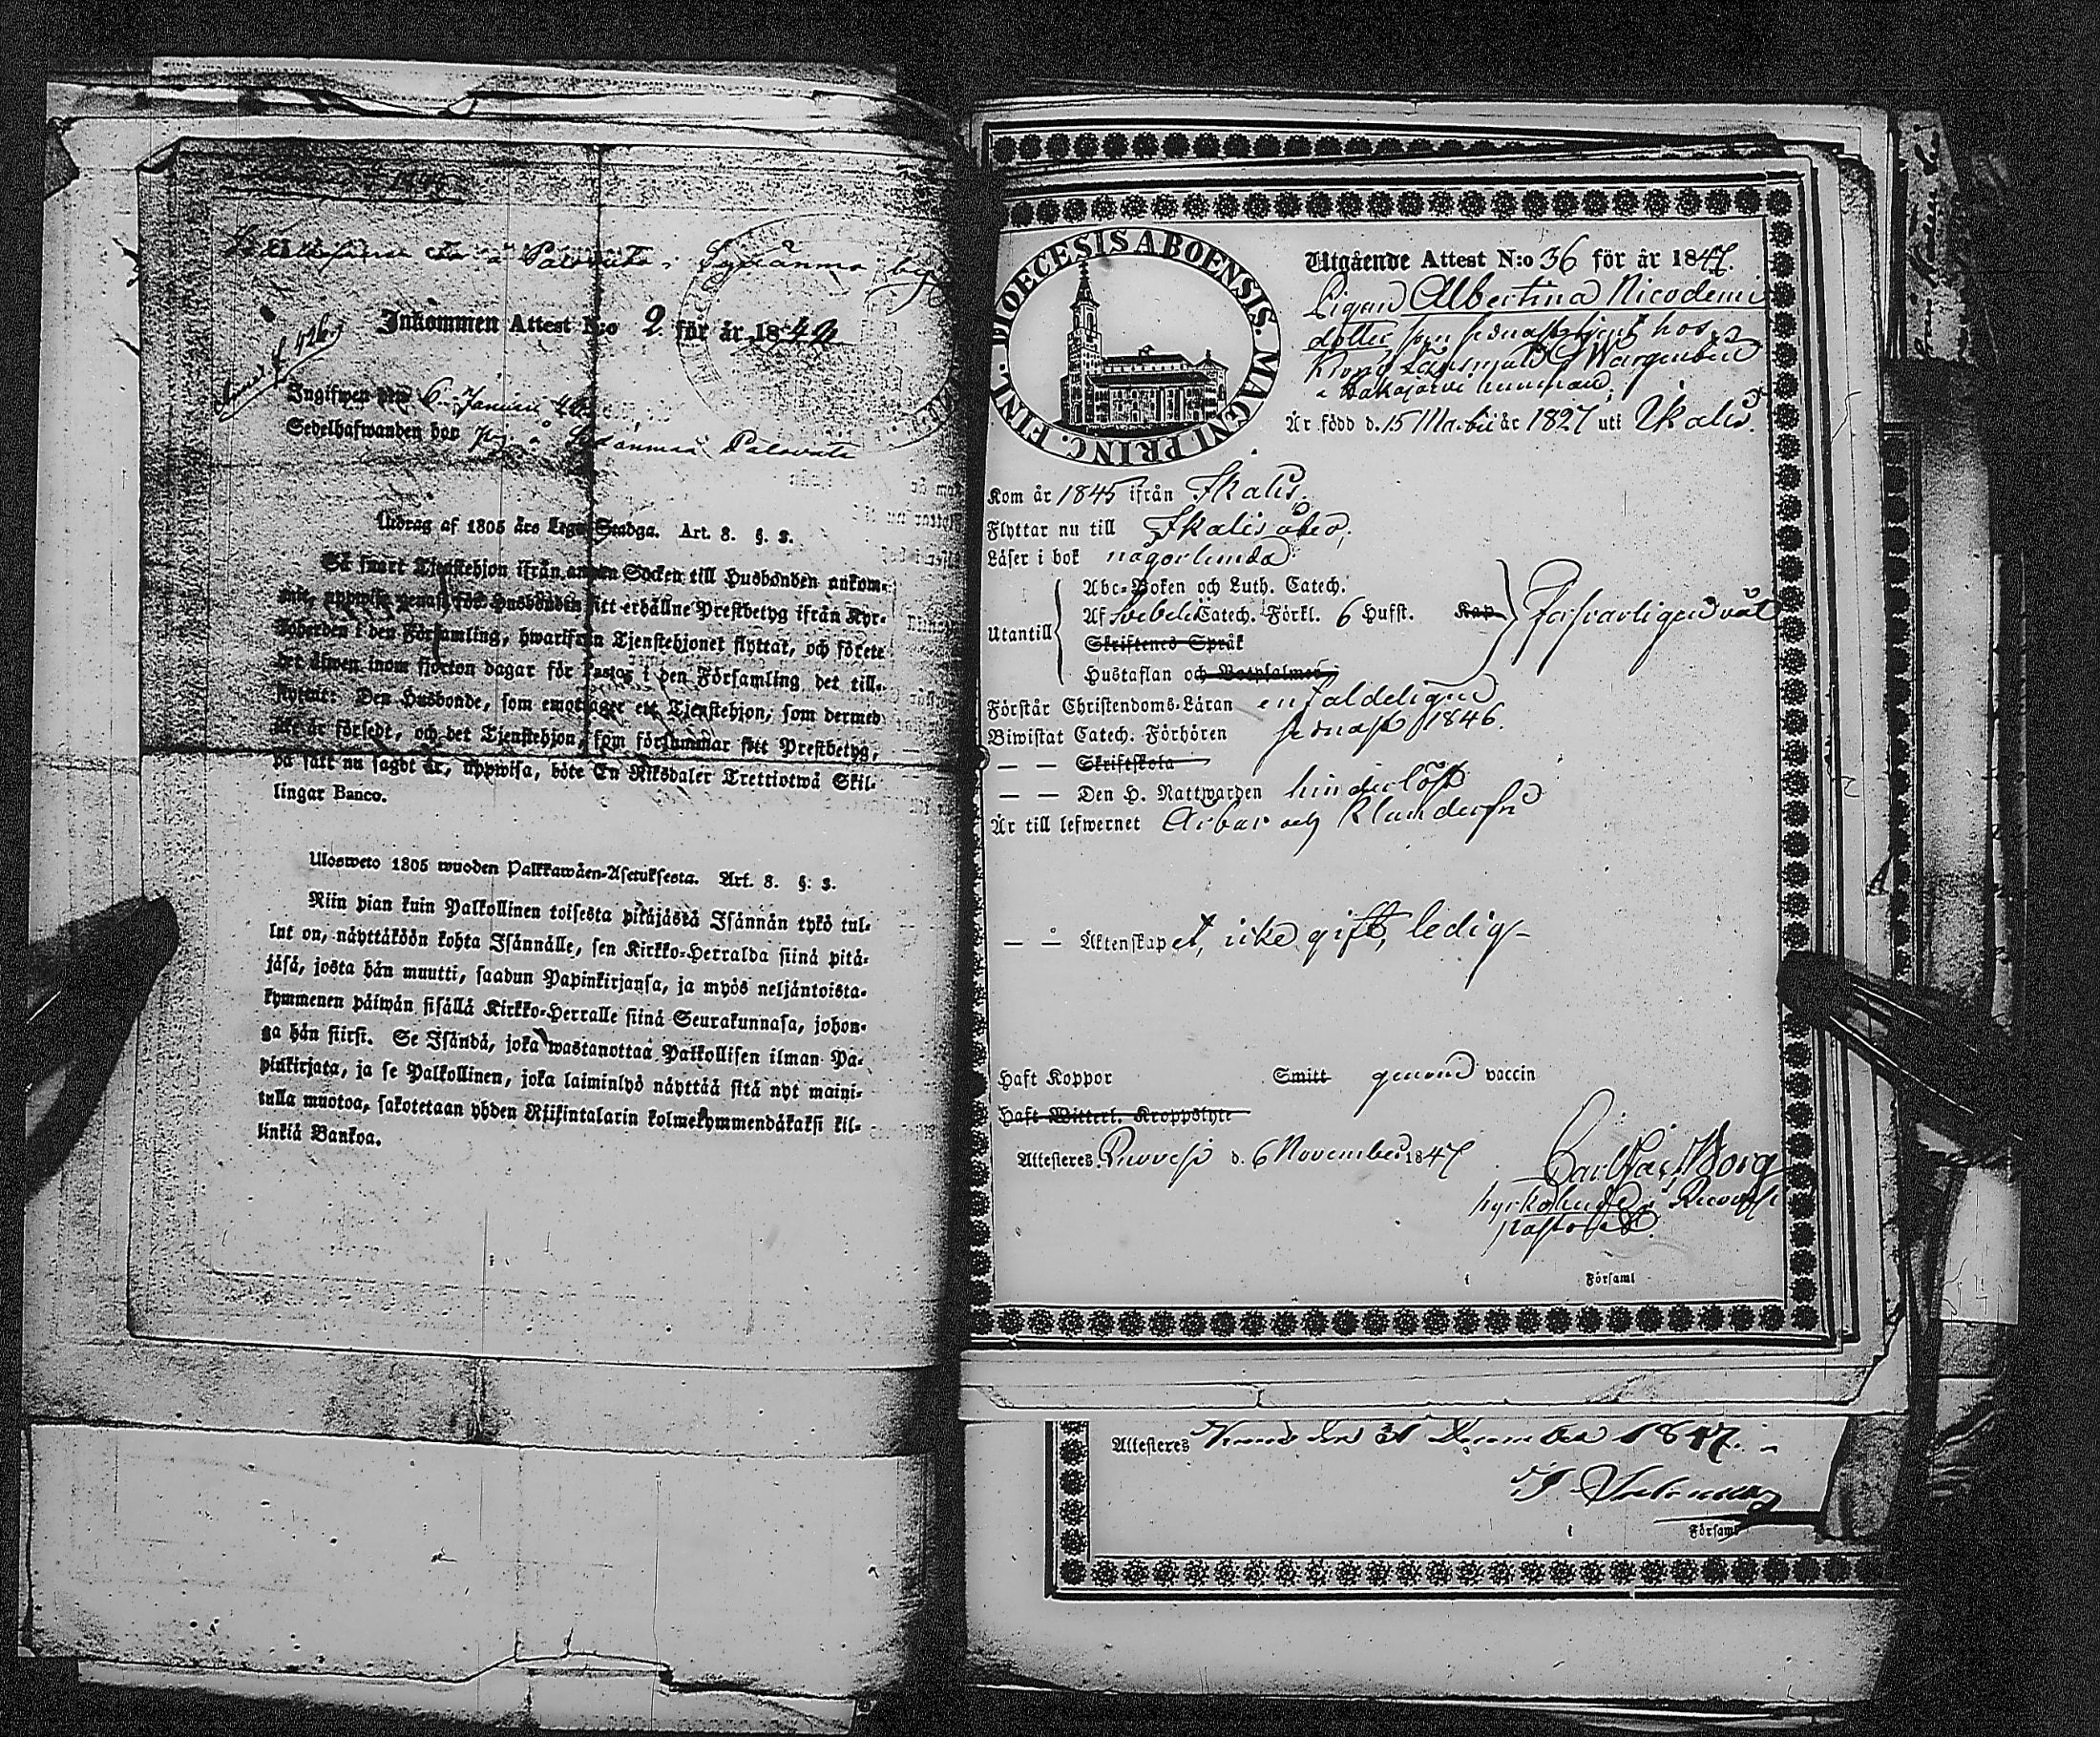 Inkommen Attest N:o 2 för år 1848
Ingifwen den 6 Januari 48
Sedelhafwanden bor på Palovuta
Utdrag af 1805 års Lego Stadga. Art. 8. §. 3.
Så snart Tjenstehjon ifrån annan Socken till Husbonden ankom-
mit, uppwise genast för Husbonden sitt erhållne Prestbetyg ifrån Kyr-
koherden i den Församling, hwarifrån Tjenstehjonet flyttat, och förete
det äfwen inom fjorton dagar för Pastor i den Församling det till-
flyttat: Den Husbonde, som emottager ett Tjenstehjon, som dermed
ej är försedt, och det Tjenstehjon, som försummar sitt Prestbetyg,
på sätt nu sagdt är, uppwisa, böte En Riksdaler Trettiotwå Skil-
lingar Banco.
Ulosweto 1805 wuoden Palkkawäen-Asetuksesta. Art. 8. §: 3.
Niin pian kuin Palkollinen toisesta pitäjästä Isännän tykö tul-
lut on, näyttäköön kohta Isännälle, sen Kirkko-Herralda siinä pitä-
jäsä, josta hän muutti, saadun Papinkirjansa, ja myös neljäntoista-
kymmenen päiwän sisällä Kirkko-Herralle siinä Seurakunnasa, johon-
ga hän siirsi. Se Isändä, joka wastanottaa Palkollisen ilman Pa-
pinkirjata, ja se Palkollinen, joka laiminlyö näyttää sitä nyt maini-
tulla muotoa, sakotetaan yhden Riikintalarin kolmekymmendäkaksi kil-
linkiä Bankoa.
DIOECESIS ABOENSIS. MAGNI PRINC. FINL.
Utgående Attest N:o 36 för år 1847.
Pigan Albertina Nicodemi
dotter som sednast tjent hos
Krono Länsman Wargenbäck
i
Är född d. 15 år 1827 uti Ikalis.
Kom år 1845 ifrån Ikalis.
Flyttar nu till Ikalis åter,
Läser i bok någorlunda
Abc-Boken och Luth. Catech.
Utantill Af Svebelii Catech. Förkl. 6 Hufst. Kap Försvarligen väl
Skriftenes Språk
Hustaflan och Botpsalmer
Förstår Christendoms-Läran enfaldeligen
Biwistat Catech. Förhören sednast 1846.
— — Skriftskola
— — Den H. Nattwarden hinderlöst
Är till lefwernet Ärbar och Klanderfri
— — Äktenskapet, icke gift, ledig
Haft Koppor Smitt genom vaccin
Haft Witterl. Kroppslyte
Attesteres Ruovesi d. 6 November 1847
Carl Borg
kyrkoherde i Ruovesi
Pastorat.
i Församl
Attesteres den 31 December 1847.
i Församl